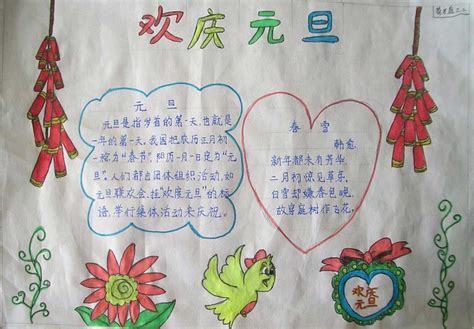 欢庆元旦
元旦
元旦是指岁首的第一天,也就是
一年的第一天,我国把农历正月初
一称为“春节”,阳历一月一日定为“元
旦”。人们都占团体组织活动,如
元旦联欢会,挂“欢度元旦”的标
语,举行集体活动来庆祝。
春雪
韩愈
新年都未有芳华,
二月初惊见草芽。
白雪却嫌春色晚,
故穿庭树作飞花。
欢庆
元旦